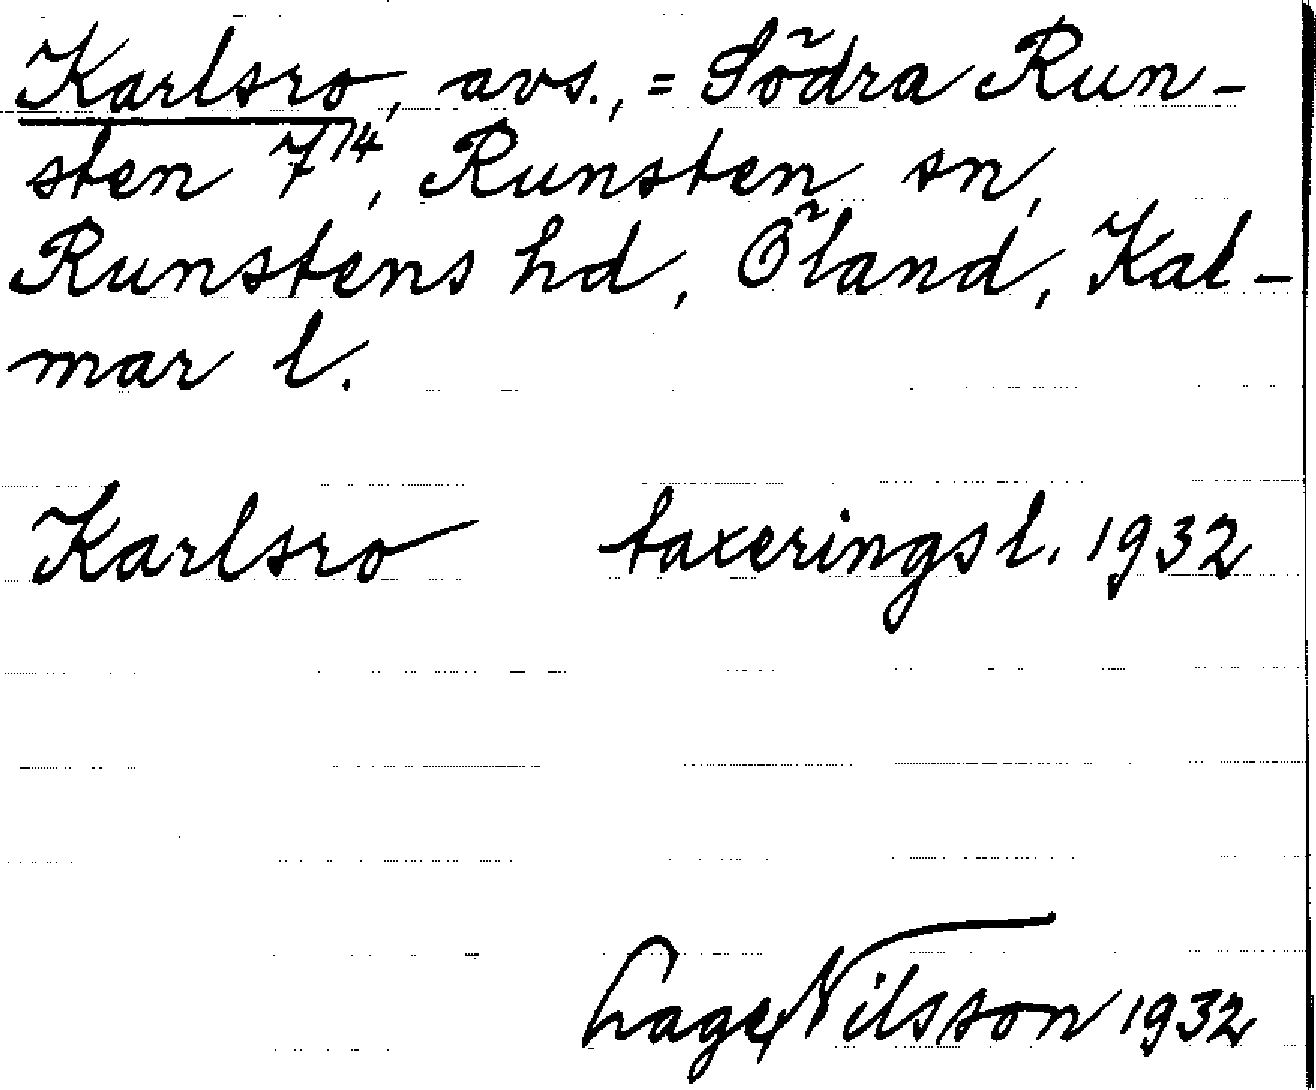 Karlsro, avs., = Södra Run-
sten 7¹⁴, Runsten sn,
Runstens hd, Öland, Kal-
mar l.
Karlsro taxeringsl. 1932
Lage Nilsson 1932